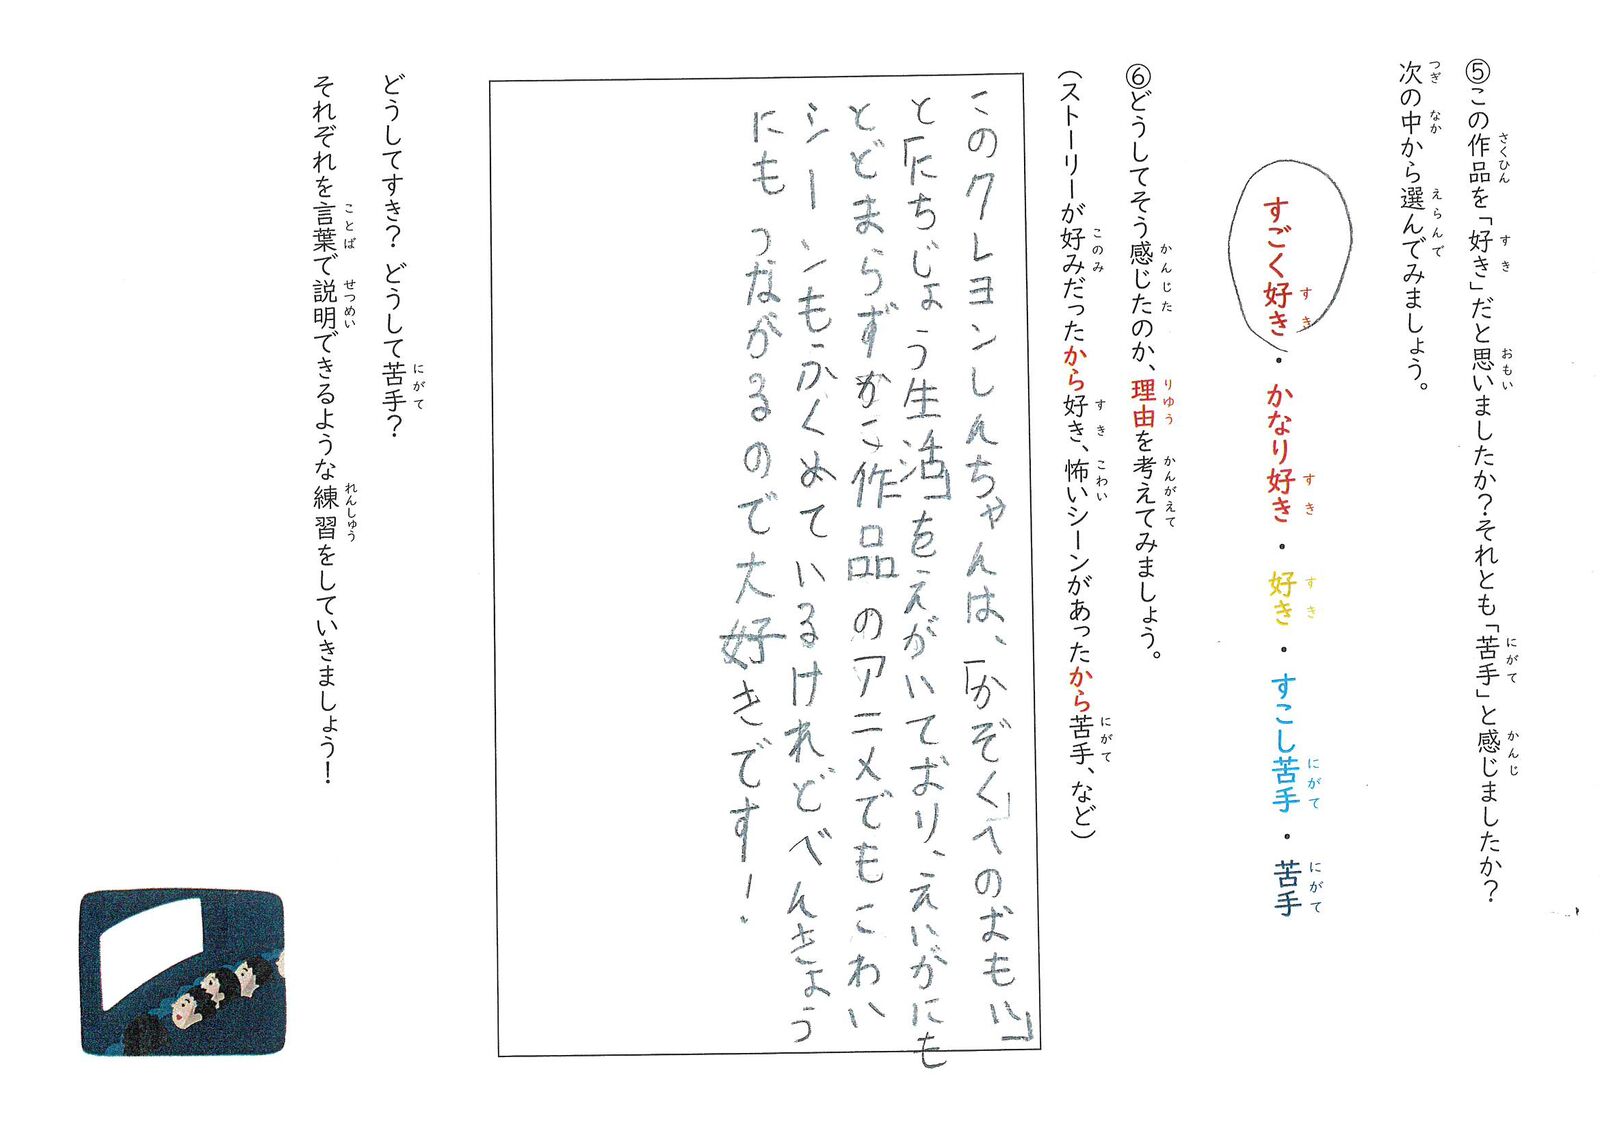 ⑤この作品を「好き」だと思いましたか？それとも「苦手」と感じましたか？
次の中から選んでみましょう。
すごく好き・かなり好き・好き・すこし苦手・苦手
⑥どうしてそう感じたのか、理由を考えてみましょう。
(ストーリーが好みだったから好き、怖いシーンがあったから苦手、など)
このクレヨンしんちゃんは、「かぞく」へのおもい」
と「にちじょう生活」をえがいており、えいがにも
とどまらずかこ作品のアニメでもこわい
シーンもふくめているけれどべんきょう
にもつながるので大好きです!
どうしてすき？どうして苦手？
それぞれを言葉で説明できるような練習をしていきましょう！